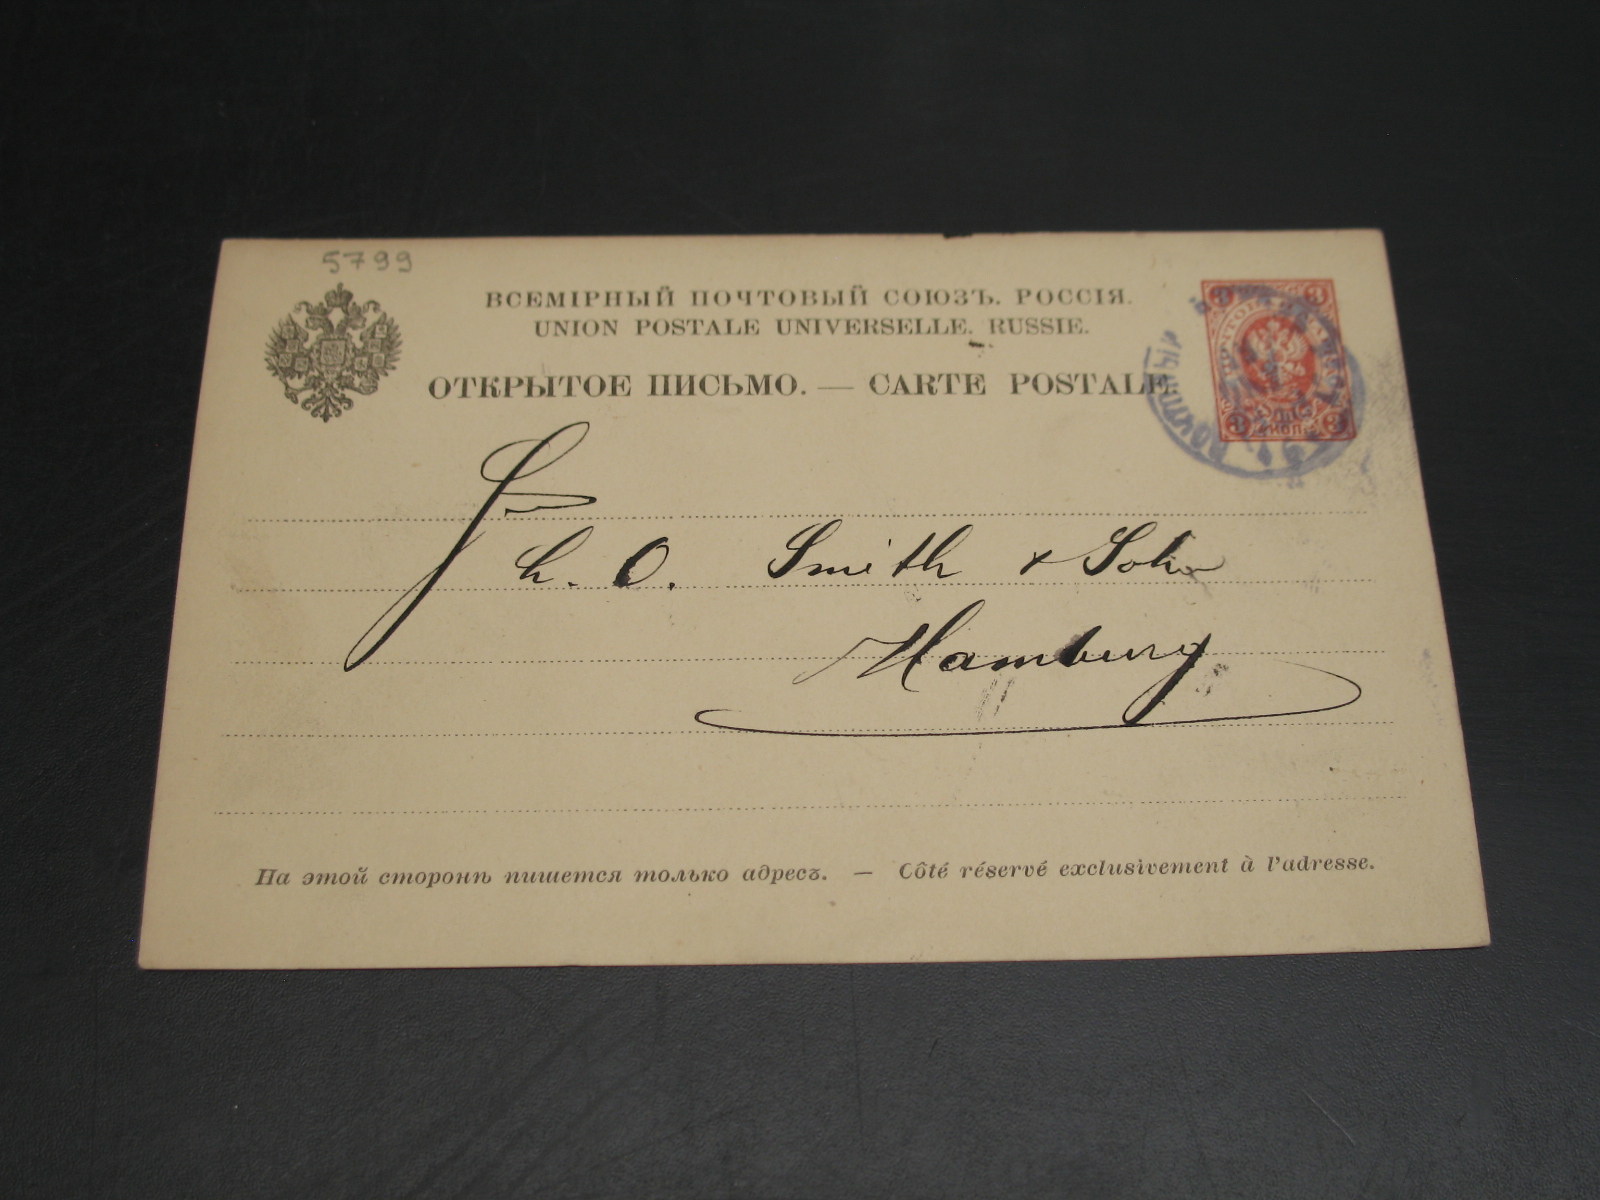 5799
ВСЕМІРНЫЙ ПОЧТОВЫЙ СОЮЗЪ. РОССІЯ.
UNION POSTALE UNIVERSELLE. RUSSIE.
ОТКРЫТОЕ ПИСЬМО. — CARTE POSTALE
3 3
3 3
КОП.
ПОЧТОВЫЙ
h. O. Smith & Sohn
Hamburg
На этой сторонѣ пишется только адресъ. — Côté réservé exclusivement à l'adresse.